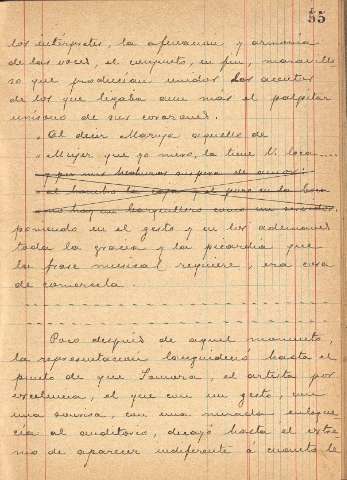 55
los intérpretes, la afinacion y armonía
de las voces, el conjunto, en fin, maravillo
so que producian unidos los acentos
de los que llegaba aun más el palpitar
unisono de sus corazones.
Al decir Maruja aquello de
"Mujer, que yo miro, la tiene V. loca....
y por mis hechuras suspira de amor:
al hombre la
no hay un
poniendo en el gesto y en los ademanes
toda la gracia y la picardía que
la frase musical requiere, era cosa
de comersela.
Poco después de aquel momento,
la representacion languideció hasta el
punto de que Zamora, el artista por
excelencia, el que con un gesto, con
una sonrisa, con una mirada enloque
cía al auditorio, decayó hasta el extre
mo de aparecer indiferente á cuanto le